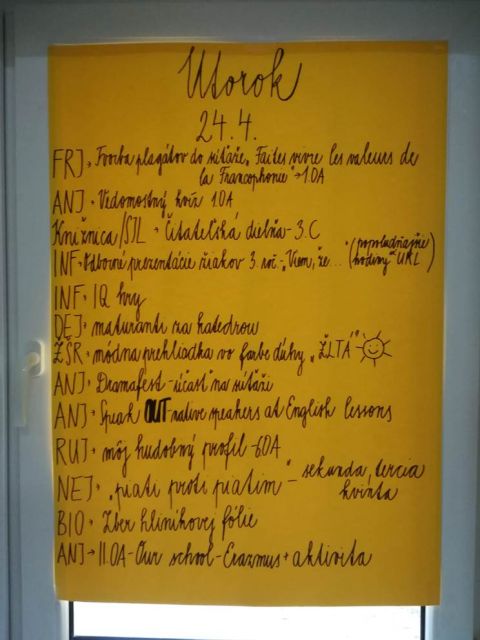 Utorok
24.4.
FRJ → Tvorba plagátov do súťaže „Faites vivre les valeurs de
la Francophonie" → 1.OA
ANJ → Vedomostný kvíz 1.OA
Knižnica/SJL → Čitateľská dielňa - 3.C
INF → Odborné prezentácie žiakov 3. roč. - „Viem, že... " (popoludňajšie
hodiny UKL)
INF → IQ hry
DEJ → maturanti za katedrou
ŽŠR → módna prehliadka vo farbe dúhy „ŽLTÁ"
ANJ → Dramafest - účasť na súťaži
ANJ → Speak OUT - native speakers at English lessons
RUJ → môj hudobný profil - 6.OA
NEJ → „piati proti piatim" - sekunda, tercia
kvinta
BIO → Zber hliníkovej fólie
ANJ → II.OA - Our school - Erazmus + aktivita